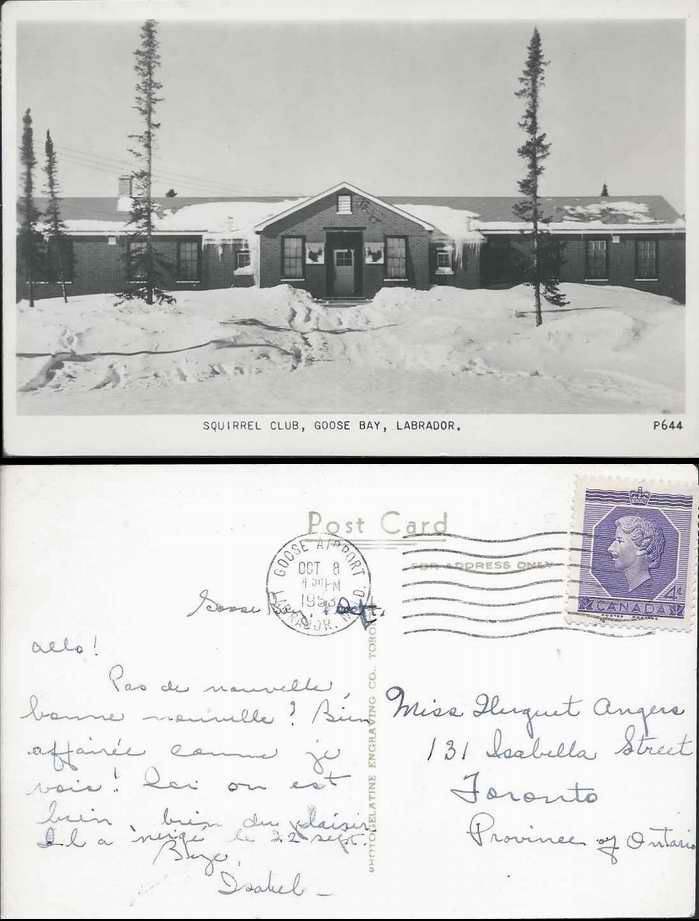 SQUIRREL CLUB, GOOSE BAY, LABRADOR.
P644
Post Card
FOR ADDRESS ONLY
GOOSE AIRPORT
OCT 8
PM
1953
LABRADOR, NFLD.
CANADA
4¢
Goose Bay,
allo!
Pas de nouvelle,
bonne nouvelle? Bien
affairée comme je
vois! Ici on est
bien, bien du plaisir
Il a neigé le 22 sept.
Isabel -
PHOTOGELATINE ENGRAVING CO., TORO
Miss Huguet Angers
131 Isabella Street
Toronto
Province of Ontario